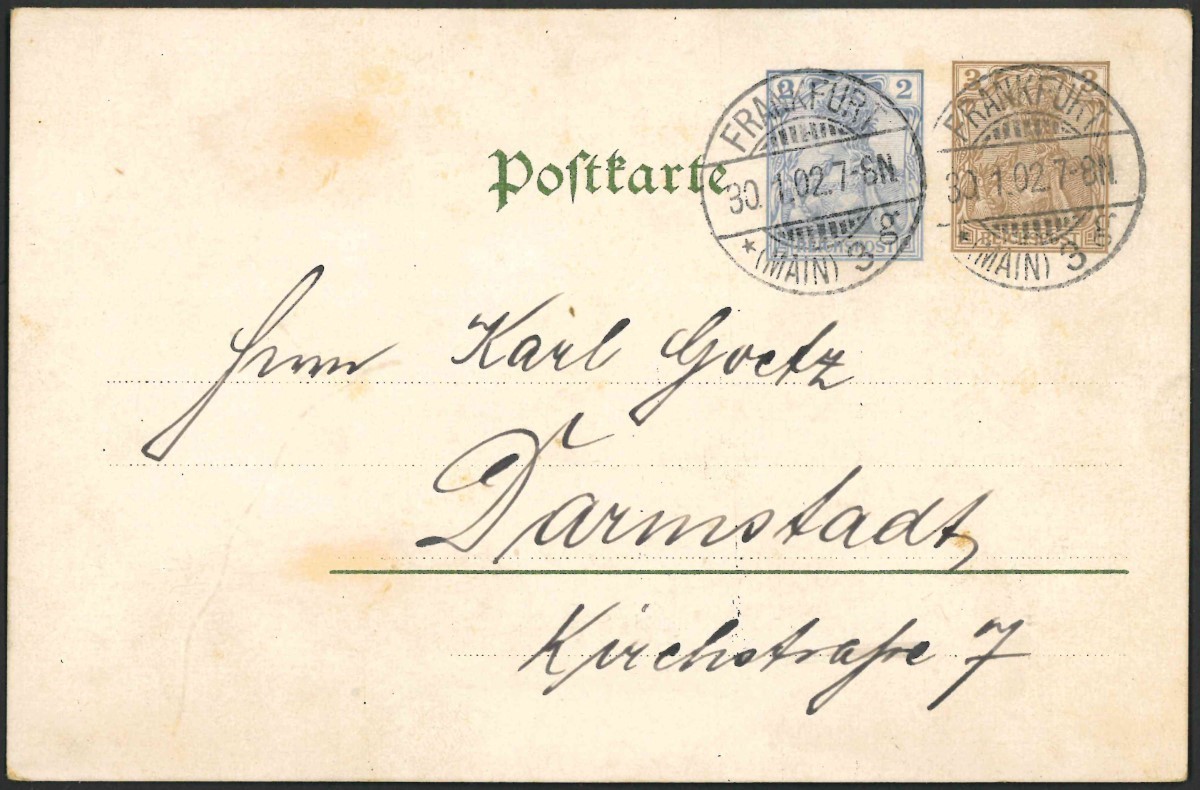 2 2 3 3
REICHSPOST REICHSPOST
FRANKFURT FRANKFURT
30.1.02.7-8N. 30.1.02.7-8N.
* (MAIN) 3 * (MAIN) 3
Poſtkarte
Herrn Karl Goetz
Darmstadt,
Kirchstraße 7